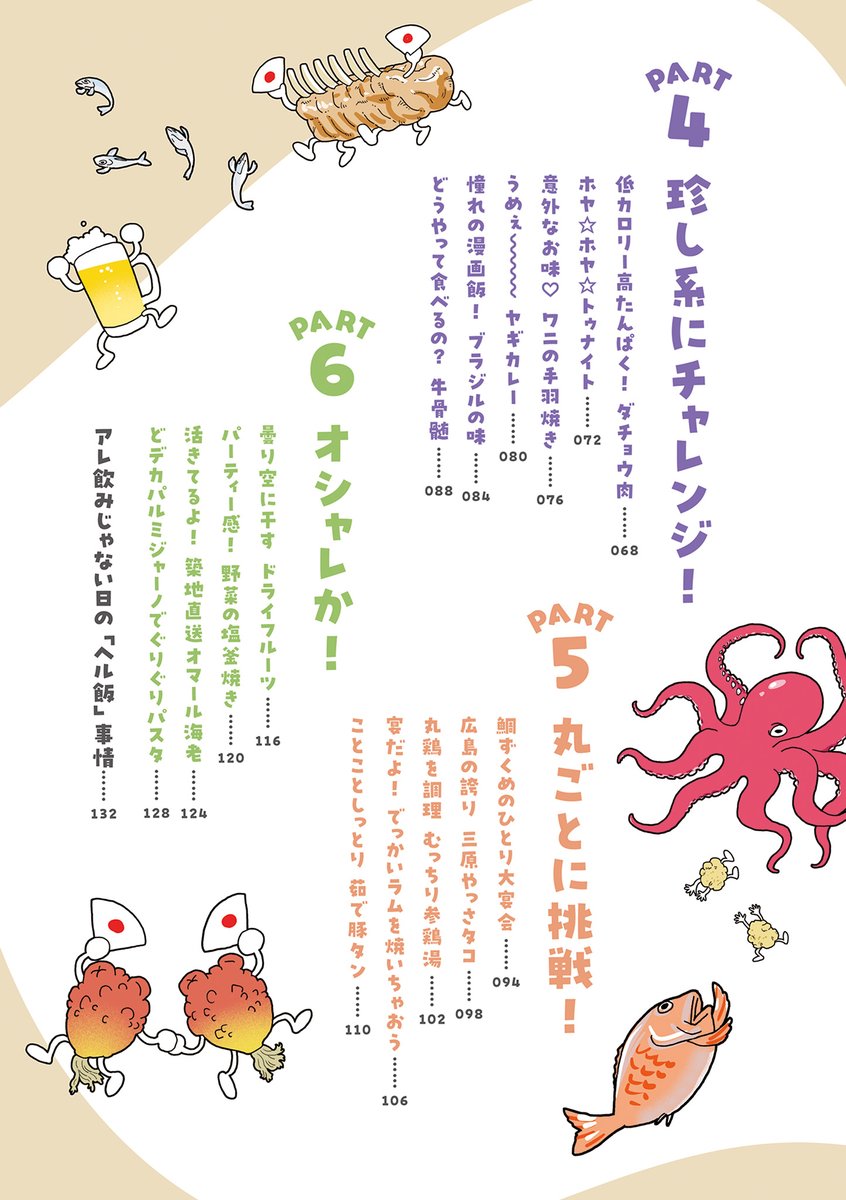 PART
4
珍し系にチャレンジ！
低カロリー高たんぱく！ ダチョウ肉……068
ホヤ☆ホヤ☆トゥナイト……072
意外なお味♡ ワニの手羽焼き……076
うめぇ〜〜〜〜 ヤギカレー……080
憧れの漫画飯！ ブラジルの味……084
どうやって食べるの？ 牛骨髄……088
PART
5
丸ごとに挑戦！
鯛ずくめのひとり大宴会……094
広島の誇り 三原やっさタコ……098
丸鶏を調理 むっちり参鶏湯……102
宴だよ！ でっかいラムを焼いちゃおう……106
ことことしっとり 茹で豚タン……110
PART
6
オシャレか！
曇り空に干す ドライフルーツ……116
パーティー感！ 野菜の塩釜焼き……120
活きてるよ！ 築地直送オマール海老……124
どデカパルミジャーノでぐりぐりパスタ……128
アレ飲みじゃない日の「ヘル飯」事情……132